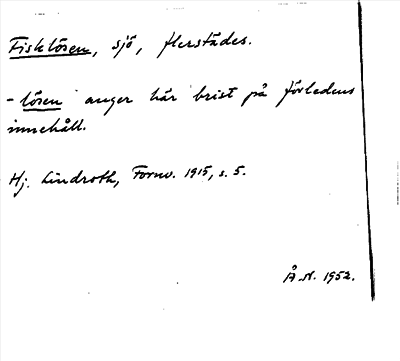 Fisklösen, sjö, flerstädes.
- lösen anger här brist på förledens
innehåll.
Hj. Lindroth, Fornv. 1915, s. 5.
Å.N. 1952.